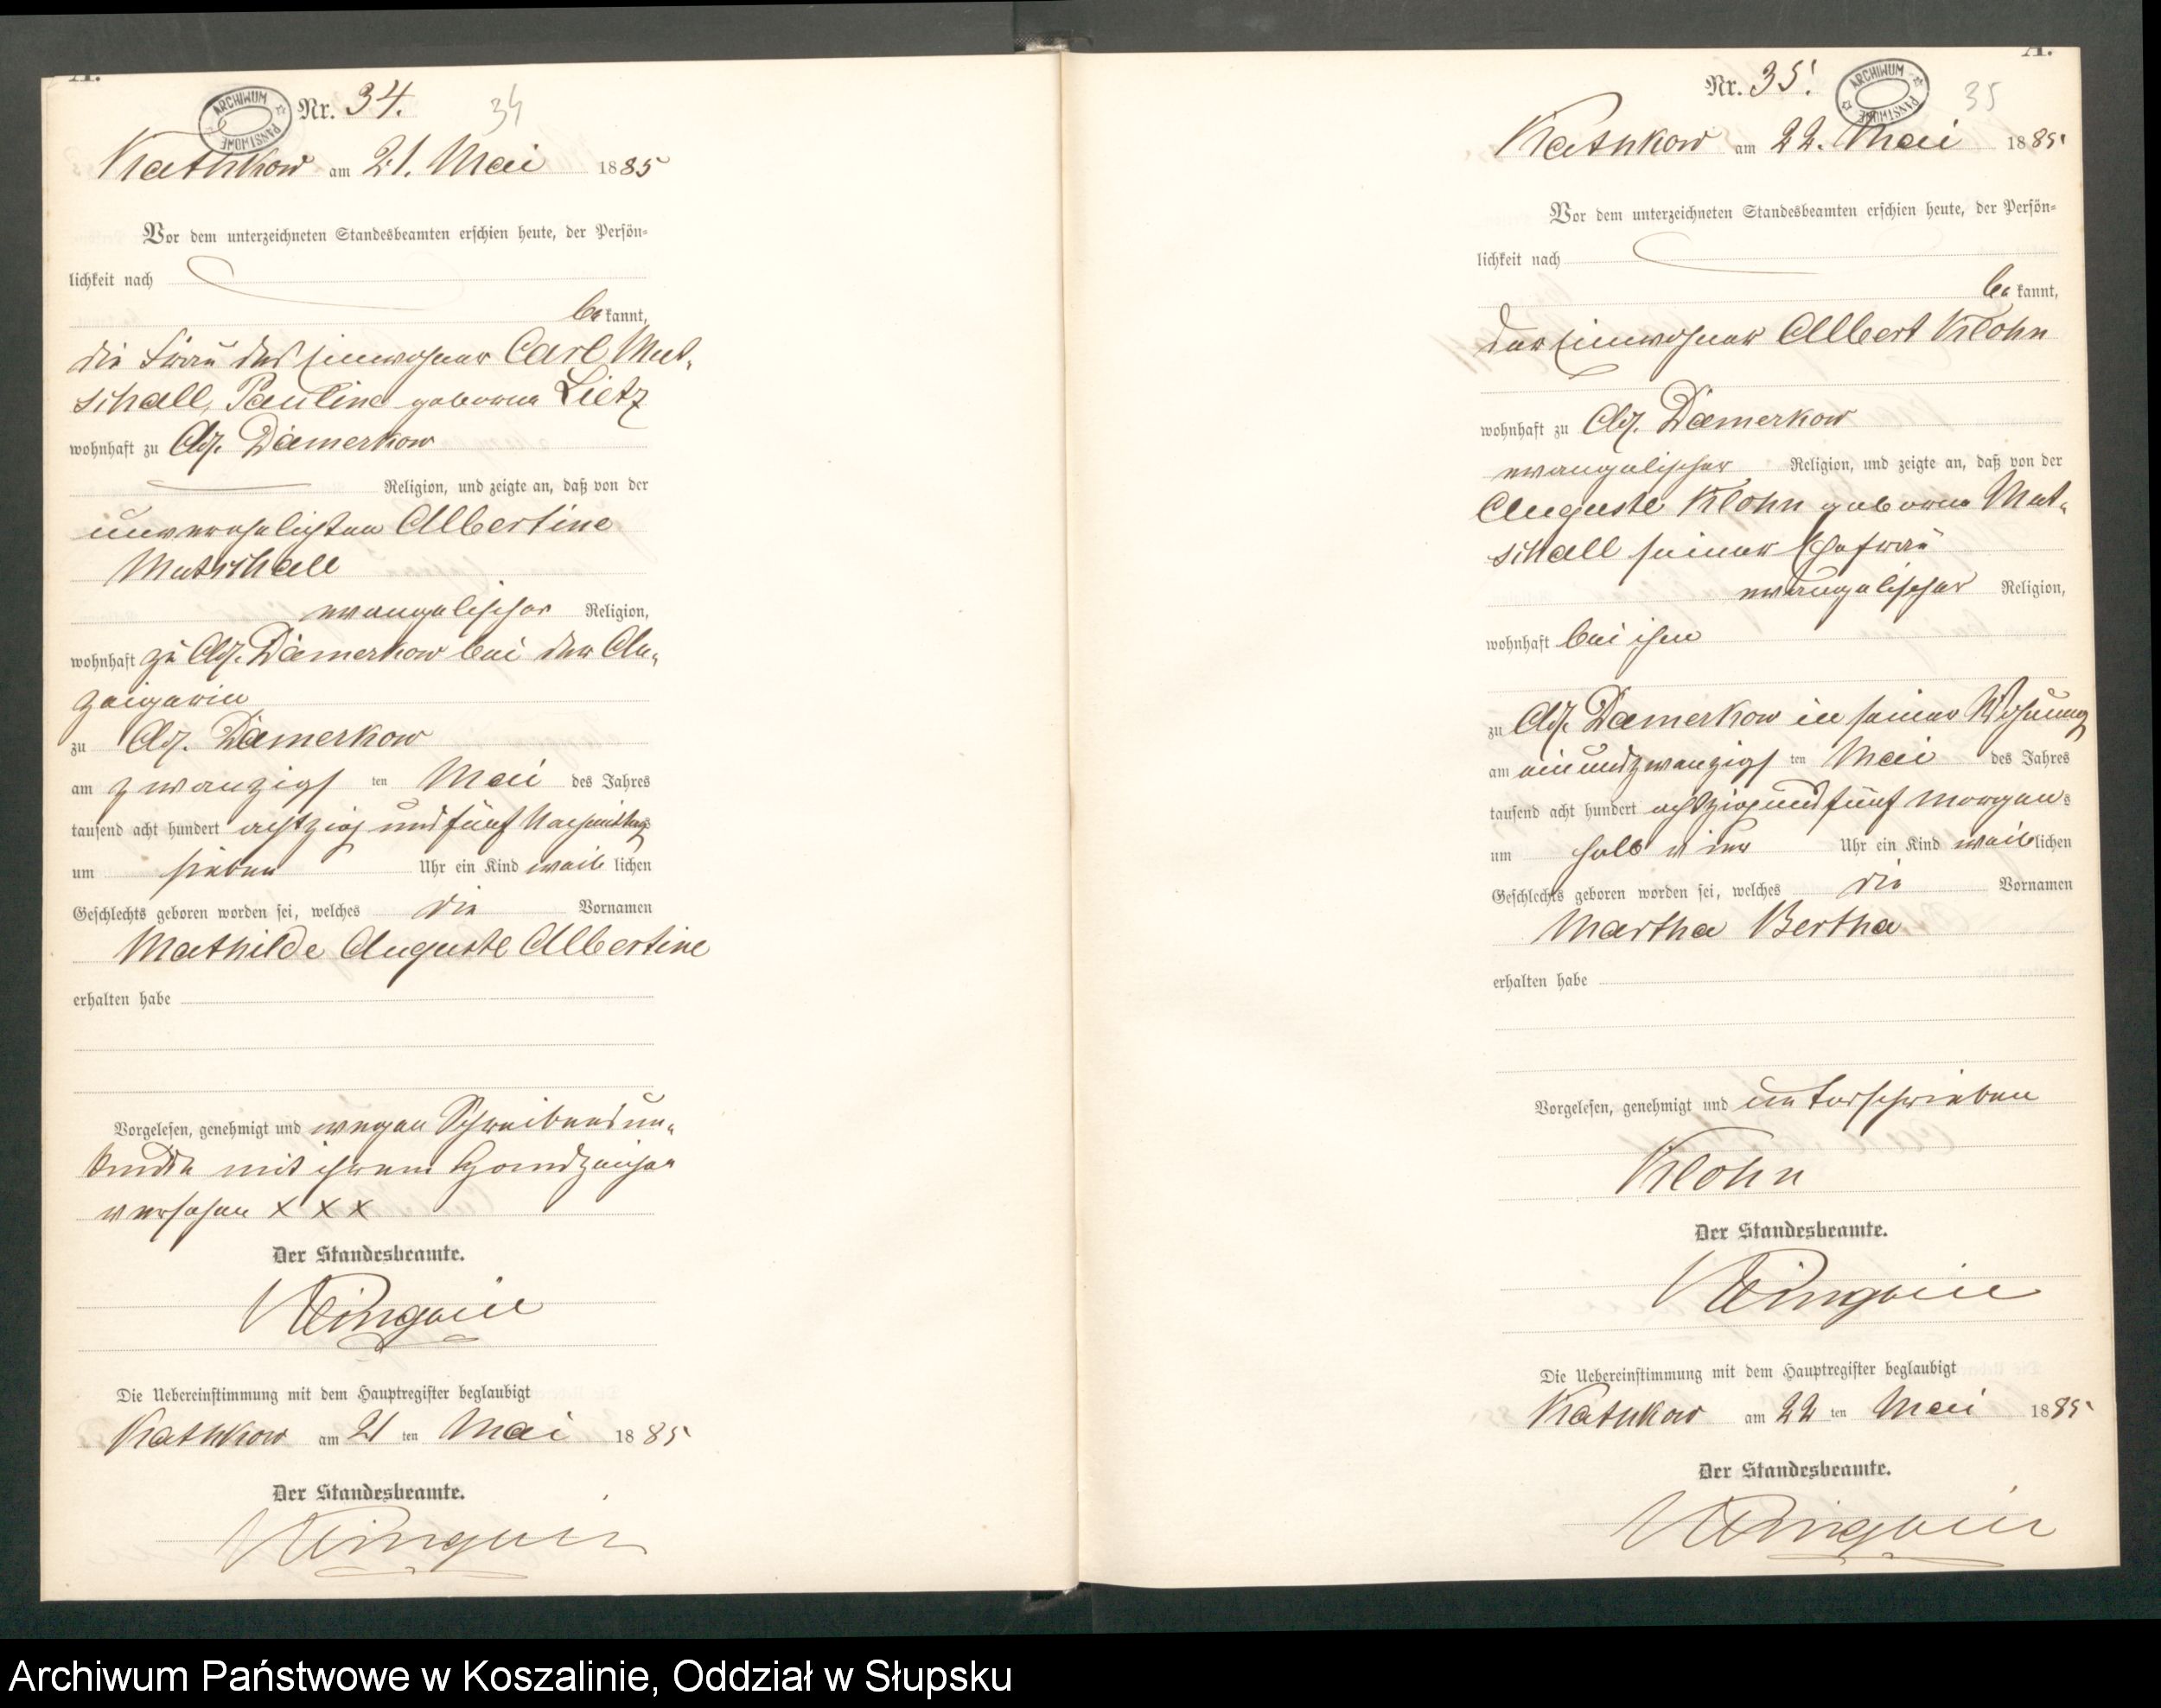 A.
Nr. 34.
34
ARCHIWUM PAŃSTWOWE
Kathkow am 21. Mai 1885
Vor dem unterzeichneten Standesbeamten erschien heute, der Persön-
lichkeit nach
be kannt,
die Frau des Einwohner Carl Mut-
schall, Pauline geborne Lietz
wohnhaft zu Adl. Damerkow
Religion, und zeigte an, daß von der
unverehelichten Albertine
Mutschall
evangelischer Religion,
wohnhaft zu Adl. Damerkow bei der An-
zeigerin
zu Adl. Damerkow
am zwanzigs ten Mai des Jahres
tausend acht hundert achtzig und fünf Nachmittags
um sieben Uhr ein Kind weib lichen
Geschlechts geboren worden sei, welches die Vornamen
Mathilde Auguste Albertine
erhalten habe
Vorgelesen, genehmigt und wegen Schreibensun-
kunde mit ihrem Handzeichen
versehen x x x
Der Standesbeamte.
Die Uebereinstimmung mit dem Hauptregister beglaubigt
Kathkow am 21 ten Mai 1885
Der Standesbeamte.
A.
Nr. 35.
35
ARCHIWUM PAŃSTWOWE
Kathkow am 22. Mai 1885
Vor dem unterzeichneten Standesbeamten erschien heute, der Persön-
lichkeit nach
be kannt,
der Einwohner Albert Klohn
wohnhaft zu Adl. Damerkow
evangelischer Religion, und zeigte an, daß von der
Auguste Klohn geborne Mut-
schall seiner Ehefrau
evangelischer Religion,
wohnhaft bei ihm
zu Adl. Damerkow in seiner Wohnung
am einundzwanzigs ten Mai des Jahres
tausend acht hundert achtzig und fünf Morgens
um halb vier Uhr ein Kind weiblichen
Geschlechts geboren worden sei, welches die Vornamen
Martha Bertha
erhalten habe
Vorgelesen, genehmigt und unterschrieben
Klohn
Der Standesbeamte.
Die Uebereinstimmung mit dem Hauptregister beglaubigt
Kathkow am 22 ten Mai 1885
Der Standesbeamte.
Archiwum Państwowe w Koszalinie, Oddział w Słupsku